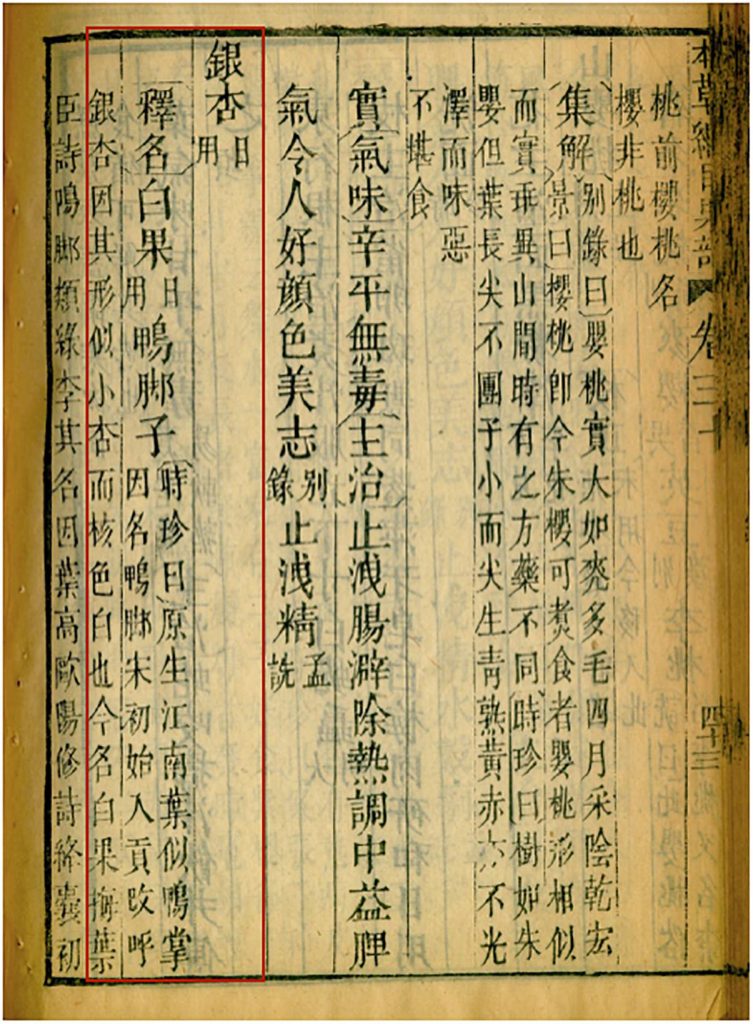 本草綱目果部 卷三十 四十三
桃前櫻桃名
櫻非桃也
集解別錄曰嬰桃實大如麥多毛四月采陰乾宏
景曰櫻桃卽今朱櫻可煑食者嬰桃形相似
而實乖異山間時有之方藥不同時珍曰樹如朱
嬰但葉長尖不團子小而尖生靑熟黃赤亦不光
澤而味惡
不堪食
實氣味辛平無毒主治止洩腸澼除熱調中益脾
氣令人好顏色美志別錄止洩精孟詵
銀杏日用
釋名白果日用鴨脚子時珍曰原生江南葉似鴨掌
因名鴨脚宋初始入貢改呼
銀杏因其形似小杏而核色白也今名白果梅葉
臣詩鴨脚類綠李其名因葉高歐陽修詩絳囊初